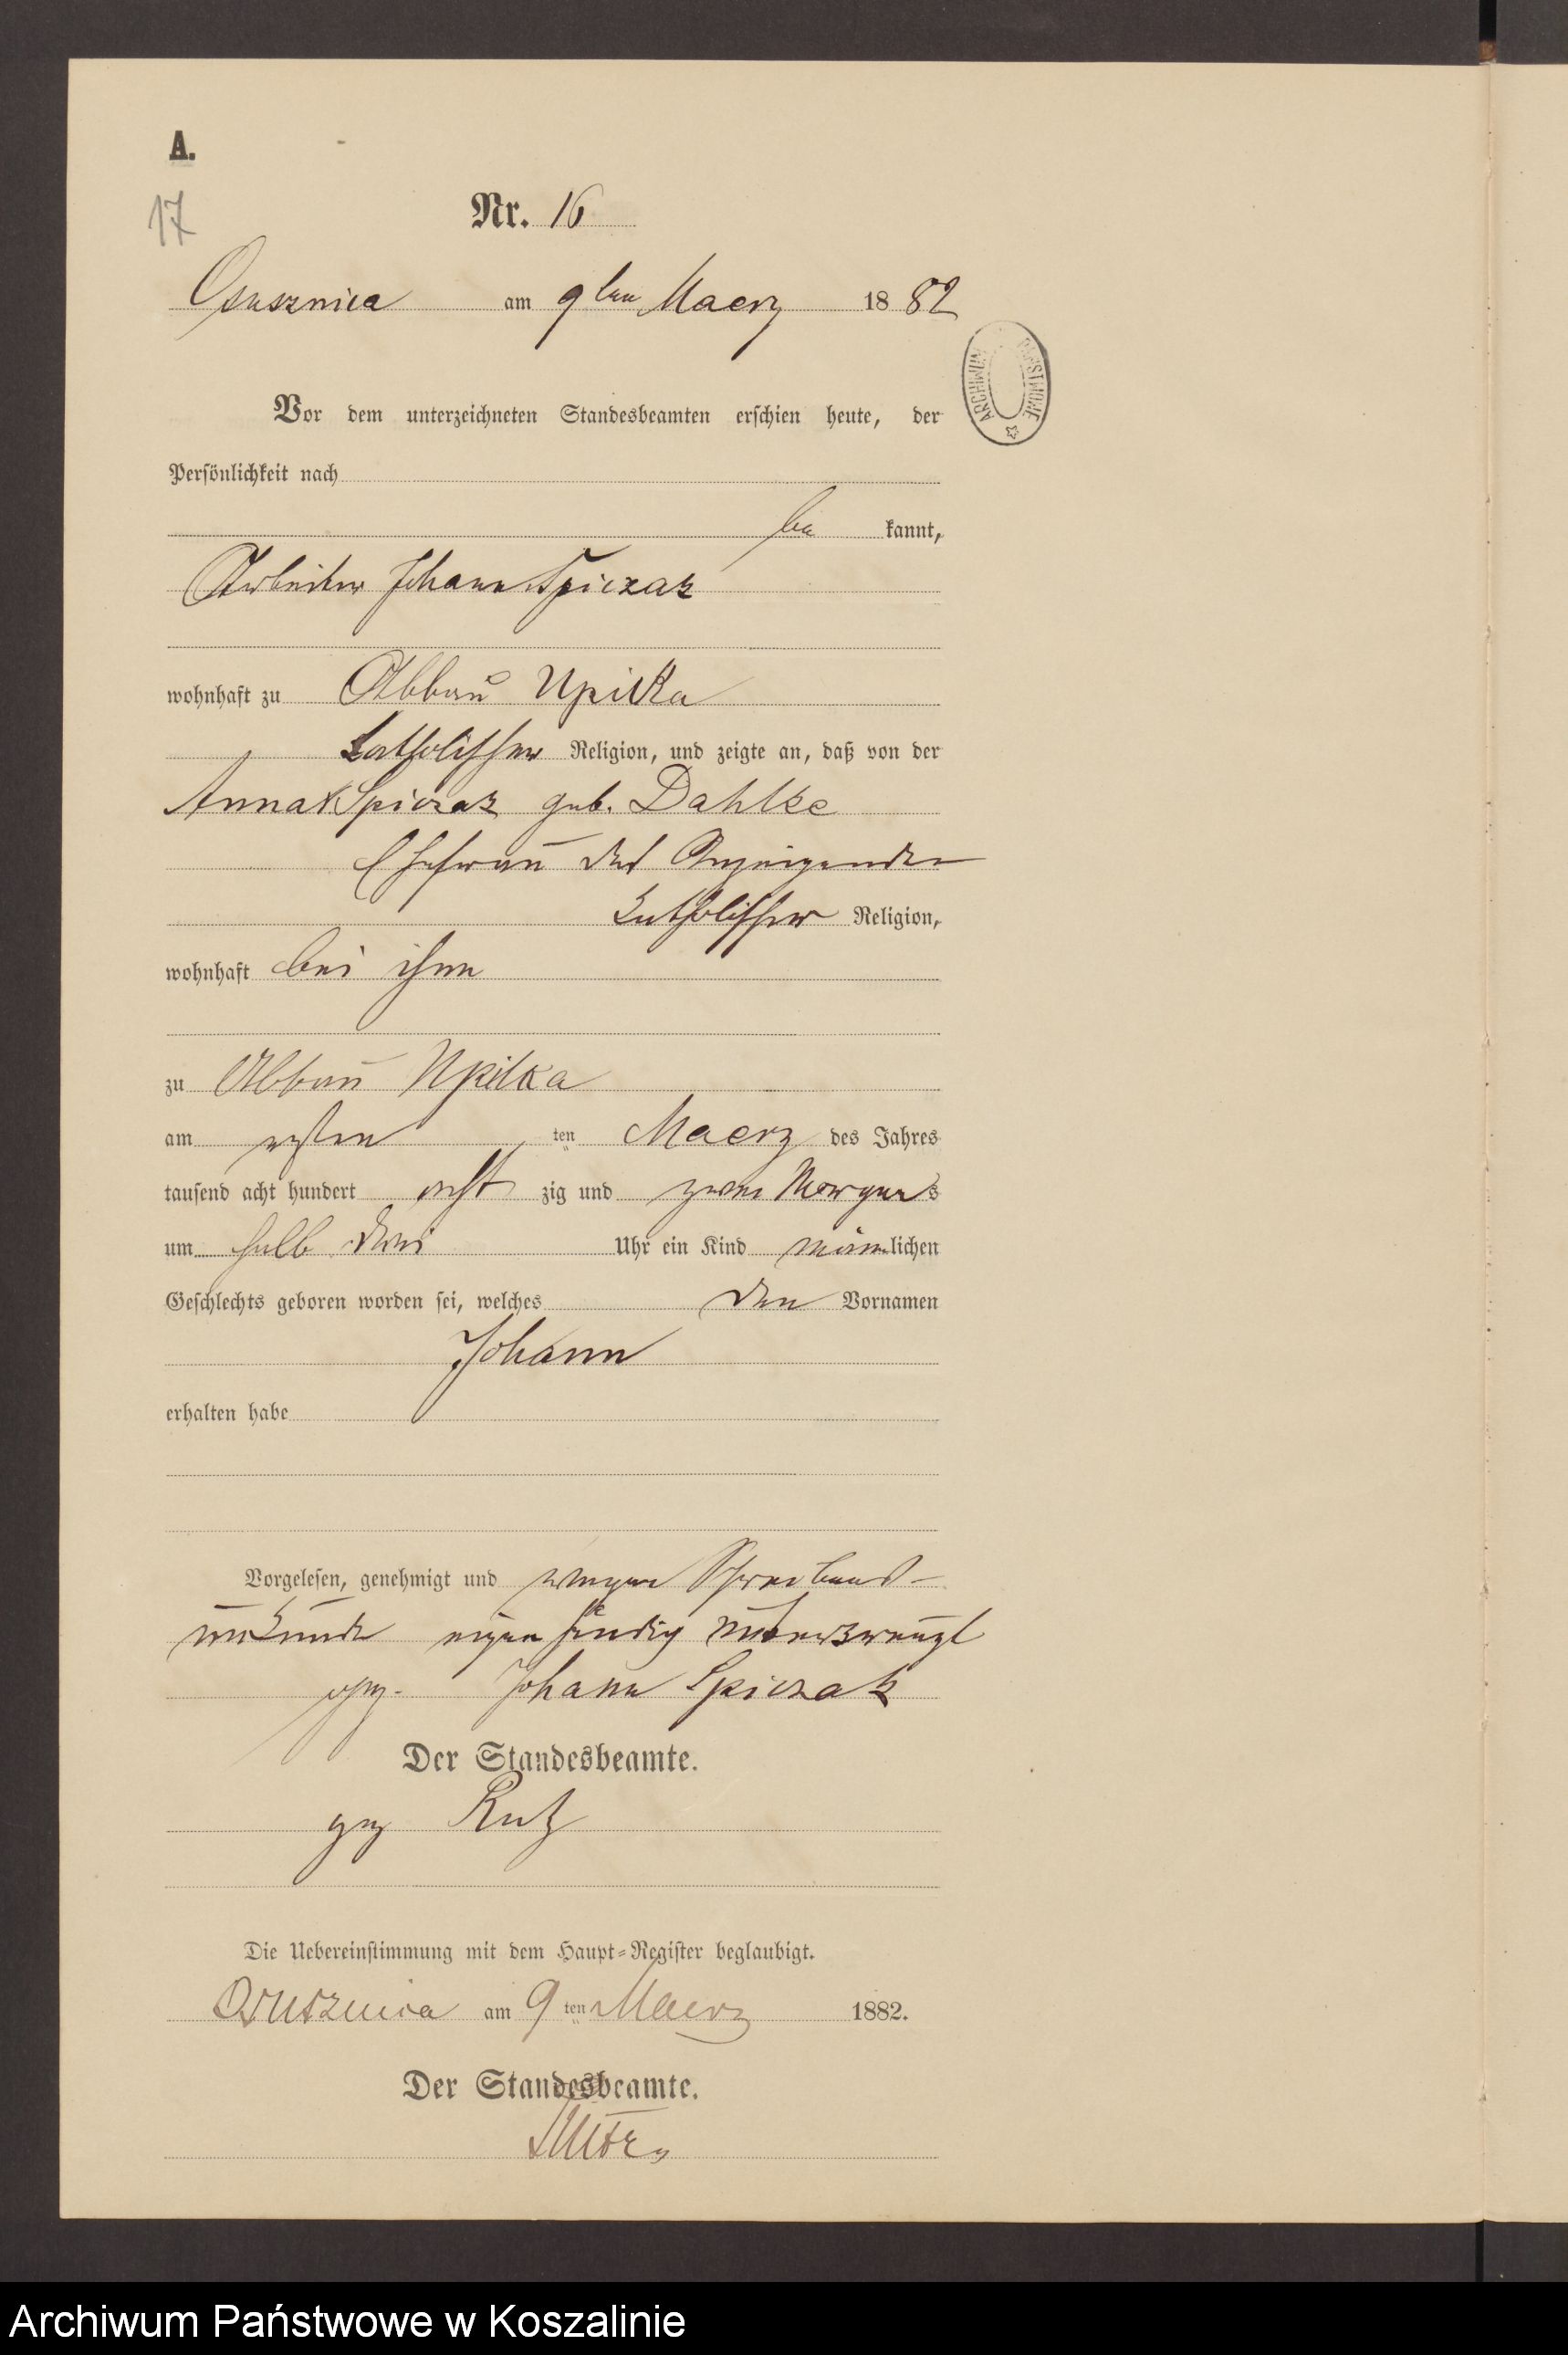 A.
17
Nr. 16
Osusznica am 9ten Maerz 18 82
ARCHIWUM PAŃSTWOWE
Vor dem unterzeichneten Standesbeamten erschien heute, der
Persönlichkeit nach
be kannt,
Arbeiter Johann Spiczak
wohnhaft zu Abbau Upilka
katholischer Religion, und zeigte an, daß von der
Anna Spiczak geb. Dahlke
Ehefrau des Anzeigenden
katholischer Religion,
wohnhaft bei ihm
zu Abbau Upilka
am ersten ten Maerz des Jahres
tausend acht hundert acht zig und zwei Morgens
um halb drei Uhr ein Kind männlichen
Geschlechts geboren worden sei, welches den Vornamen
Johann
erhalten habe
Vorgelesen, genehmigt und wegen Schreibens-
unkunde eigenhändig unterkreuzt
gez. Johann Spiczak
Der Standesbeamte.
gez
Die Uebereinstimmung mit dem Haupt-Register beglaubigt.
Osusznica am 9 ten Maerz 1882.
Der Standesbeamte.
Archiwum Państwowe w Koszalinie